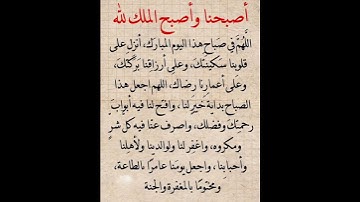 أصبحنا وأصبح الملك لله
اللهم في صباح هذا اليوم المبارك، أنزل على
قلوبنا سكينتك، وعلى أرزاقنا بركتك،
وعلى أعمارنا رضاك، اللهم اجعل هذا
الصباح بداية خير لنا، وافتح لنا فيه أبواب
رحمتك وفضلك، واصرف عنا فيه كل شر
ومكروه، واغفر لنا ولوالدينا ولأهلنا
وأحبابنا، واجعل يومنا عامرا بالطاعة،
ومختوما بالمغفرة والجنة